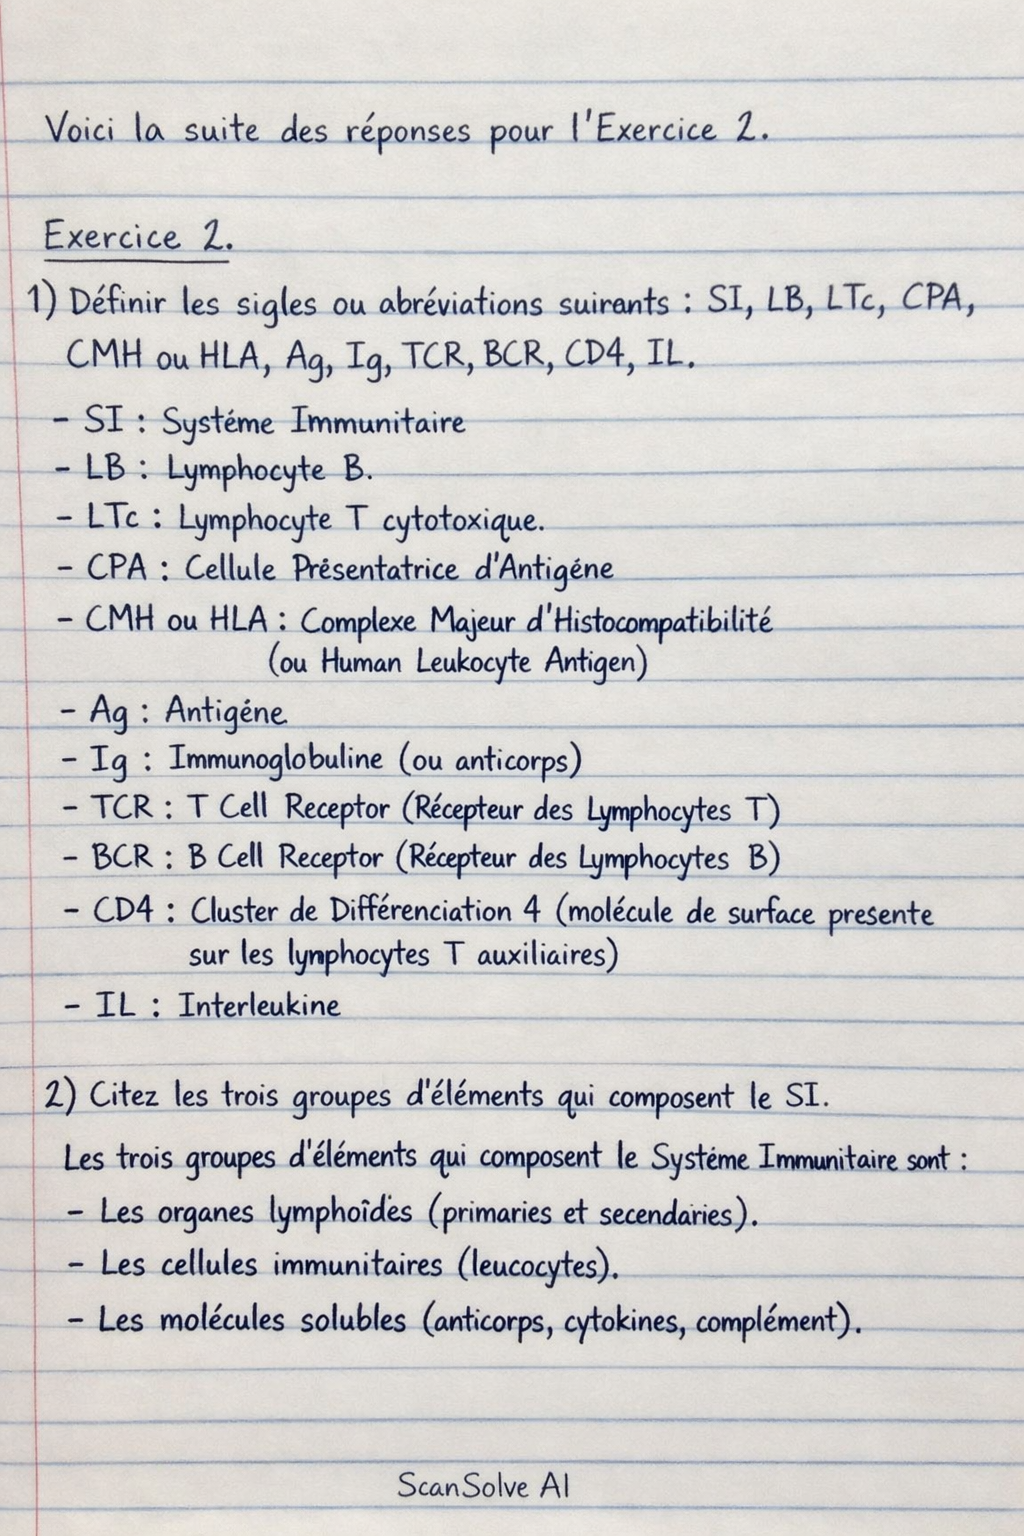 Voici la suite des réponses pour l'Exercice 2.
Exercice 2.
1) Définir les sigles ou abréviations suirants : SI, LB, LTc, CPA,
CMH ou HLA, Ag, Ig, TCR, BCR, CD4, IL.
- SI : Systéme Immunitaire
- LB : Lymphocyte B.
- LTc : Lymphocyte T cytotoxique.
- CPA : Cellule Présentatrice d'Antigéne
- CMH ou HLA : Complexe Majeur d'Histocompatibilité
(ou Human Leukocyte Antigen)
- Ag : Antigéne
- Ig : Immunoglobuline (ou anticorps)
- TCR : T Cell Receptor (Récepteur des Lymphocytes T)
- BCR : B Cell Receptor (Récepteur des Lymphocytes B)
- CD4 : Cluster de Différenciation 4 (molécule de surface presente
sur les lynphocytes T auxiliaires)
- IL : Interleukine
2) Citez les trois groupes d'éléments qui composent le SI.
Les trois groupes d'éléments qui composent le Systéme Immunitaire sont :
- Les organes lymphoîdes (primaries et secendaries).
- Les cellules immunitaires (leucocytes).
- Les molécules solubles (anticorps, cytokines, complément).
ScanSolve AI